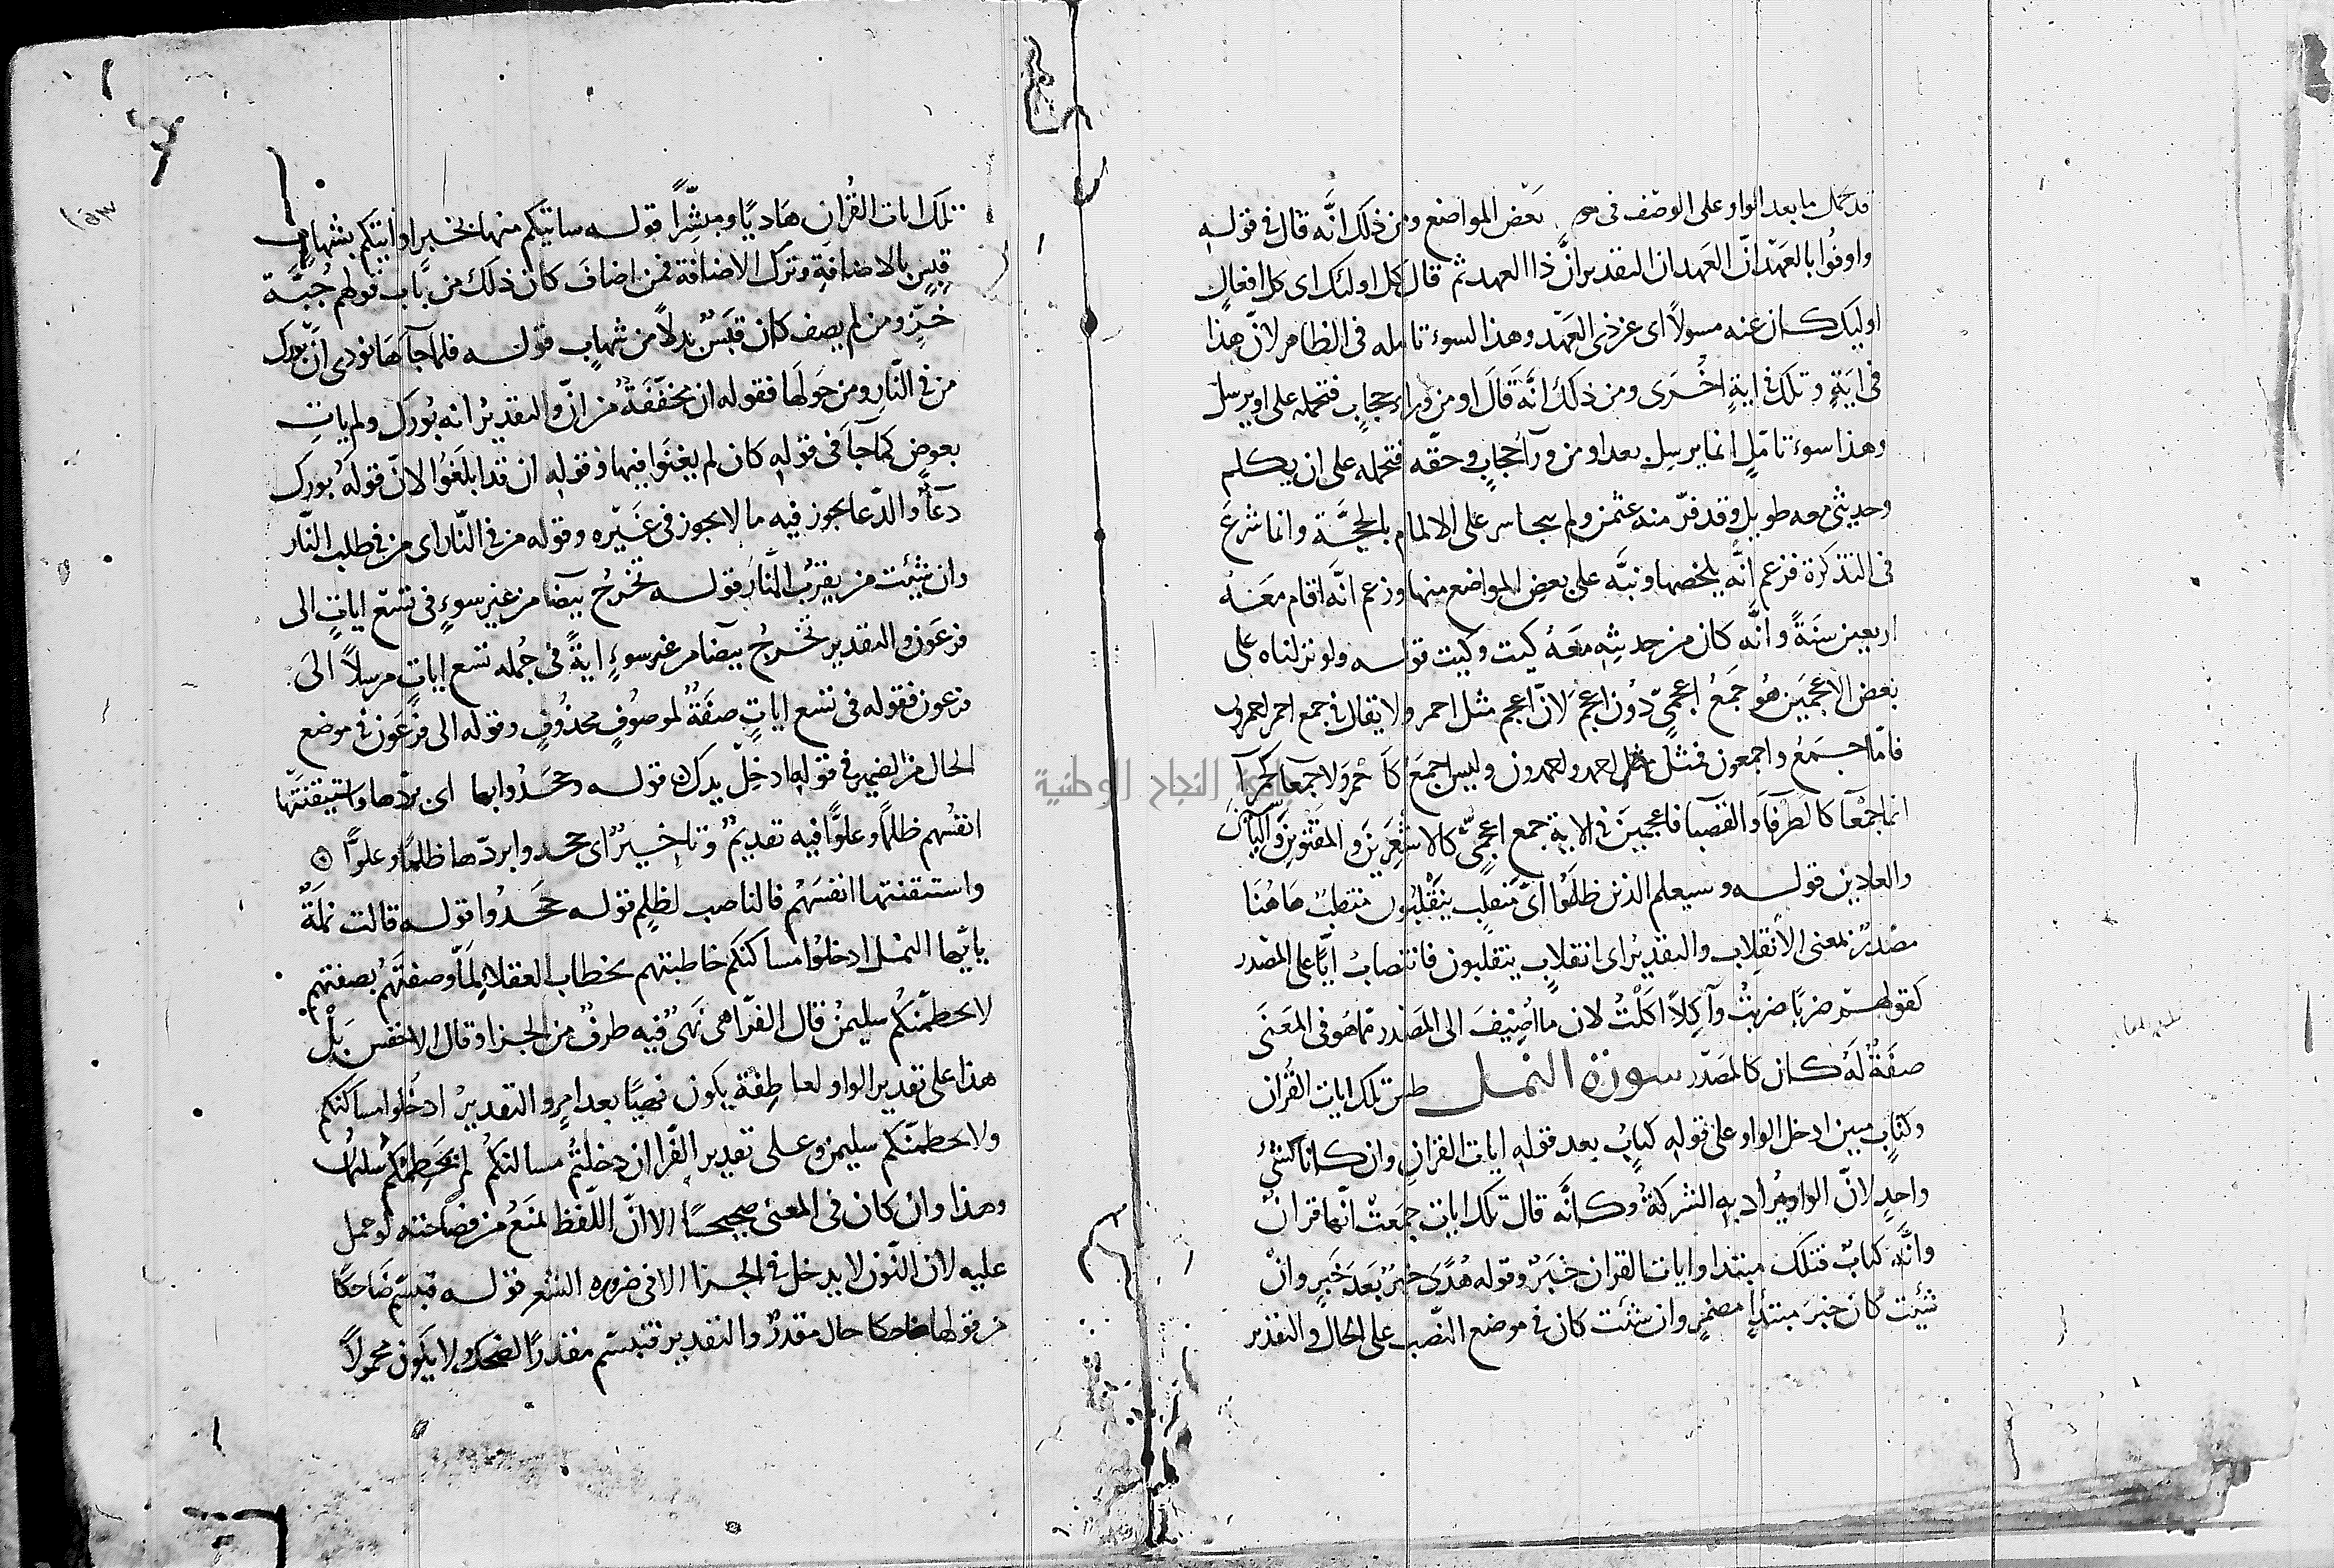 قد حمل ما بعد الواو على الوصف فى بعض المواضع ومن ذلك انَّه قال فى قوله
واوفُوا بالعَهْد انّ العَهد ان التقدير انَّ ذا العهد ثم قال كل اولئك اى كل افعال
اوليك كان عنه مسولاً اى عن ذى العَهْد وهذا لسوء تامله فى الظاهر لانّ هذا
فى ايَةٍ وتلك فى ايةٍ اخْرَى ومن ذلك انَّه قَالَ او من وراء حجابٍ فتحمله على او يرسل
وهذا سوء تامّلٍ انما يرسل بعد او من ورآ حجابٍ وحقّه فتحمله على ان يكلم
وحديثى معه طويل وقد فرّ منه عثمن ولم يتجاسر على الالمام بالحجَّة وانما شرع
فى التذكرة فزعم انَّه يلخصها ونبّه على بعض المواضع منها وزعم انَّه اقام مَعَهُ
اربعين سَنَةً وانَّه كان من حديثِه مَعَهُ كيت وكيت قوله ولو نزلناه على
بعض الاعجَمين هُو جَمعُ اعجمىّ دُون اعجَم لانّ اعجم مثل احمر ولا يقال فى جمع احمر احمرون
فامّا جُمَعُ واجمعون فمثل احمد واحمدون وليس اجمَع كأحْمَر ولا جمعآ كحمرآ
انما جمْعآ كالطرفآ والقصبا فاعجمين فى الاية جمع اعجمىّ كالاشعرين والمقتوين والياسين
والعلابين قوله وسيعلم الذين ظلمُوا اىّ منقلبٍ ينقلبُون منقلبٌ هَاهُنَا
مصْدرٌ بمعنى الانقِلاب والتقديرُ اى انقلابٍ ينقلبون فانتصابُ ايّا على المصْدر
كقولهم ضربًا ضربتُ وآكِلاً اكَلْتُ لان ما اضِيفَ الى المَصْدر مما هو فى المعنَى
صفَةٌ لَهُ كان كالمصَدّر سورة النمل طس تلك ايات القُران
وكتابٍ مبين ادخل الواو على قوله كتابٌ بعد قوله ايات القران وان كانا كشئٍ
واحدٍ لانّ الواو يُراد به الشركةُ وكانَّه قال تلك ايات جمَعتْ انّها قران
وانَّه كتابٌ فتلك مبتدا وايات القران خَبَرٌ وقوله هُدًى خبرٌ بَعدَ خَبَرٍ وانْ
شئِت كان خبرَ مبتدإٍ مضمَرٍ وان شئت كان فى موضع النّصب على الحال والتقدير
تلك ايات القُران هَاديًا ومبشّراً قوله ساتيكم منها بخبر او اتيكم بشهابٍ
قبسٍ بالاضافةِ وترك الاضافة فمن اضافَ كان ذلك من باب قولهم جُبّة
خزٍّ ومن لم يضف كان قبَسٌ بدلاً من شهابٍ قوله فلما جآهَا نودى ان بورك
من فى النّارِ ومن حَولهَا فقوله ان مخفّفَةٌ من انّ والتقديرُ انه بُورك ولم ياتِ
بعوضٍ كما جآ فى قوله كان لم يغنَوا فيها وقوله ان قد ابلغُوا لانّ قولهُ بُورك
دعآٌ والدّعا يجوز فيه ما لا يجوز فى غَيْره وقوله من فى النّار اى من فى طلب النّار
وان شئت من يقرُب النّارَ قوله تخرُج بيضا من غير سوءٍ فى تسع اياتٍ الى
فرعَون والتقدير تخْرجُ بيضا من غير سوءٍ ايةً فى جُملة تسع اياتٍ مرسلاً الىَ
فرعون فقوله فى تسع اياتٍ صفَةٌ لموصُوفٍ محذُوفٍ وقوله الى فرْعَون فى موضع
الحال من الضمير فى قوله ادخِلْ يدك قوله وجَحَدُوا بها اى بردّها واستيقنَتْها
انفسُهم ظلمًا وعلوًّا فيه تقديمٌ وتاخيرٌ اى جحدوا بردّها ظلمًا وعلوًّا
واستيقنتها انفسُهُم فالناصب لظلمٍ قوله جَحَدُوا قوله قالت نملَةٌ
يايّها النمل ادخلُوا مساكنكم خاطبتهم بخطاب العقلآ لمّا وصفتَهُم بصفتهم
لا يحطمنّكُم سليمنُ قال الفرّا هى نَهىٌ فيه طرفٌ من الجزا وقال الاخفس بَلْ
هذا على تقدير الواو لعاطِفَة يكون نهيًا بعد امرٍ والتقديرُ ادخُلوا مساكنكم
ولا يحطمنّكم سليمن وعلى تقدير الفرّا ان دخلتُم مساكنكُم لم يَحْطِمْكُم سليمنُ
وهذا وان كان فى المعنى صحيحًا الا انّ اللّفظ يمنَعُ من فصاحته لو حمل
عليه لان النّون لا يدخل فى الجزا الا فى ضروره الشعر قوله فتبسّم ضَاحكًا
من قولها ضاحكا حال مقدرٌ والتقدير فتبسّم مقدرًا الضحك ولا يكون محمولاً
جامعة النجاح الوطنية